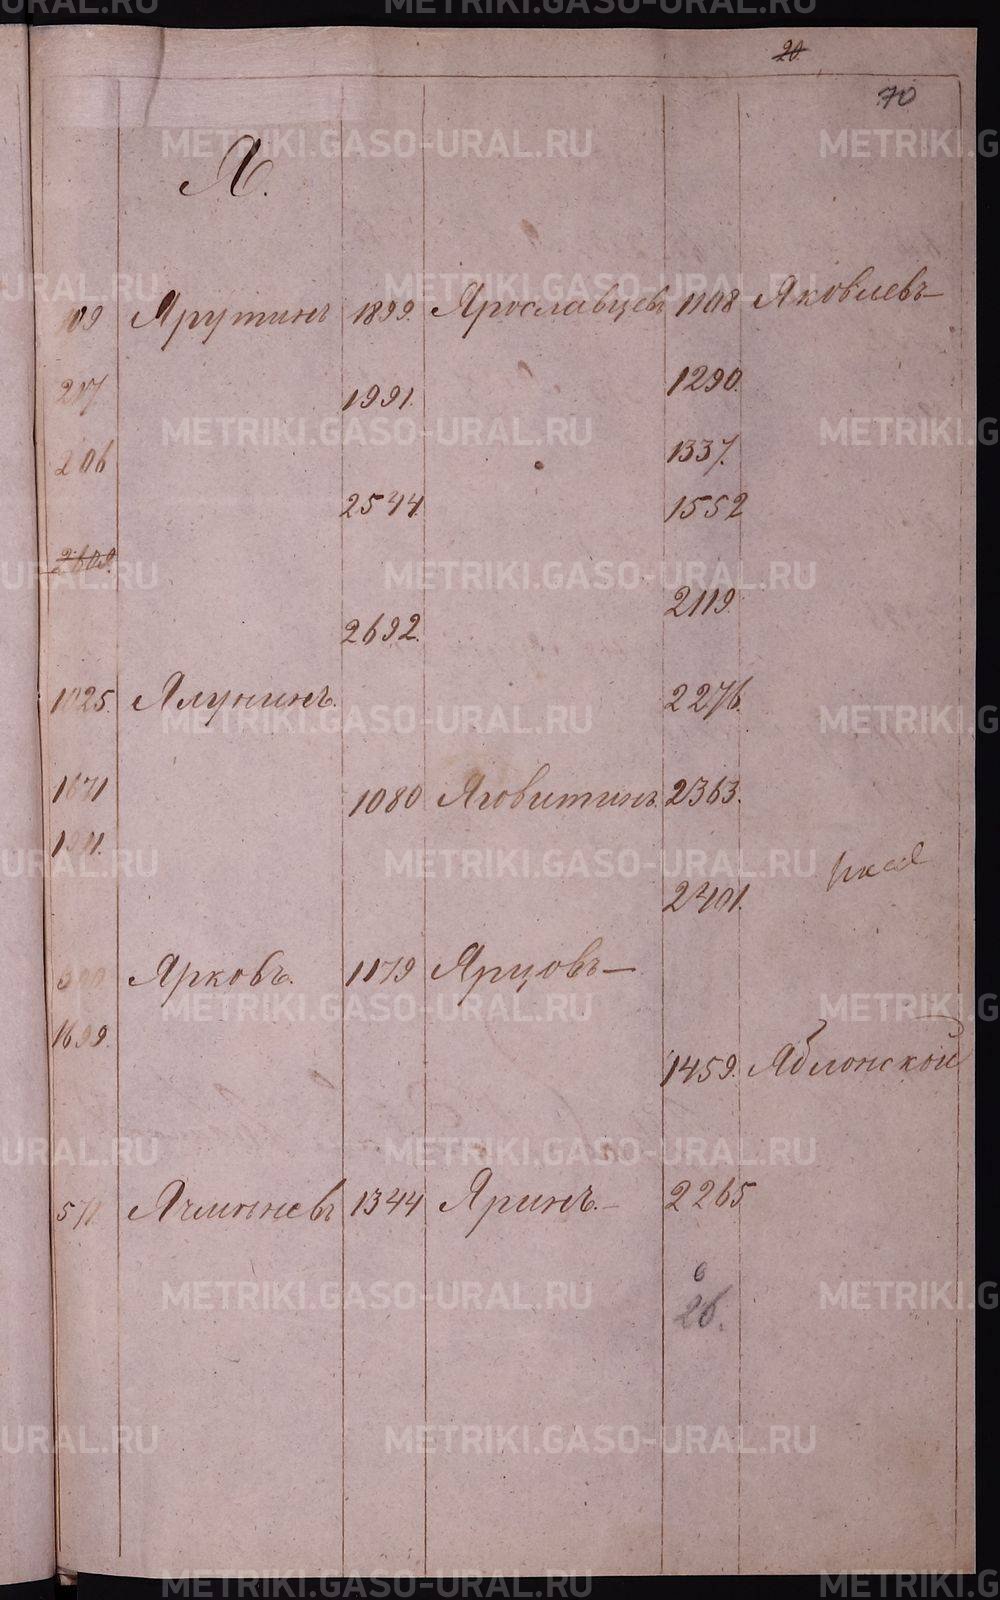 20
70
Я.
109 Ярутинъ 1899. Ярославцевъ 1108 Яковлевъ
217
1991.
1290.
206
1337.
2544.
1552
2119.
2692.
1025. Ялунинъ.
2276.
1671
1080 Яговитинъ 2363.
1911.
2401.
Ярковъ. 1179 Ярцовъ
1699.
1459. Яблонской
571 Ячменевъ 1344 Яринъ.
2265
6
26.
METRIKI.GASO-URAL.RU